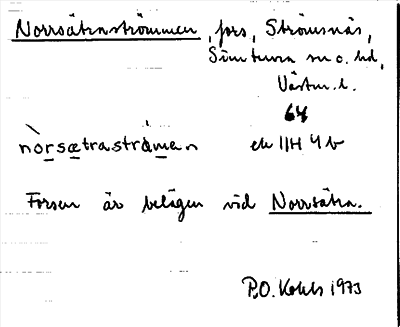 Norrsätraströmmen, fors, Strömsnäs,
Simtuna sn o. hd,
Västm. l.
64
nòrsætraströ̀men ek 11H 4b
Forsen är belägen vid Norrsätra.
P.O. 1973